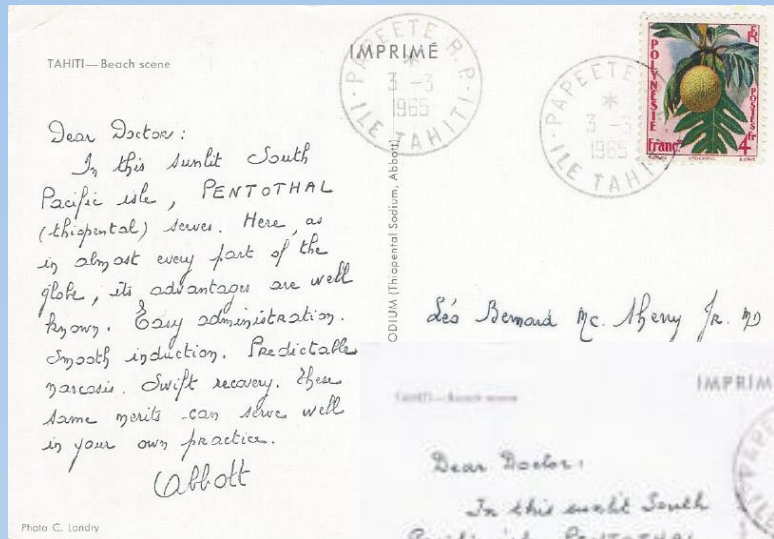 TAHITI—Beach scene
IMPRIMÉ
PAPEETE R.P.
3 -3
1965
ILE TAHITI
PAPEETE
3 -3
1965
ILE TAHITI
RF
POLYNÉSIE
POSTES
Franç^se
4F
Dear Doctor:
In this sunlit South
Pacific isle, PENTOTHAL
(thiopental) serves. Here, as
in almost every part of the
globe, its advantages are well
known. Easy administration.
Smooth induction. Predictable
narcosis. Swift recovery. These
same merits can serve well
in your own practice.
Abbott
Photo C. Landry
ODIUM (Thiopental Sodium, Abbott)
Léo Bernard Mc. Sherry Jr. MD
TAHITI—Beach scene
IMPRIM
PAPEE
ILE
Dear Doctor:
In this sunlit South
Pacific isle, PENTOTHAL